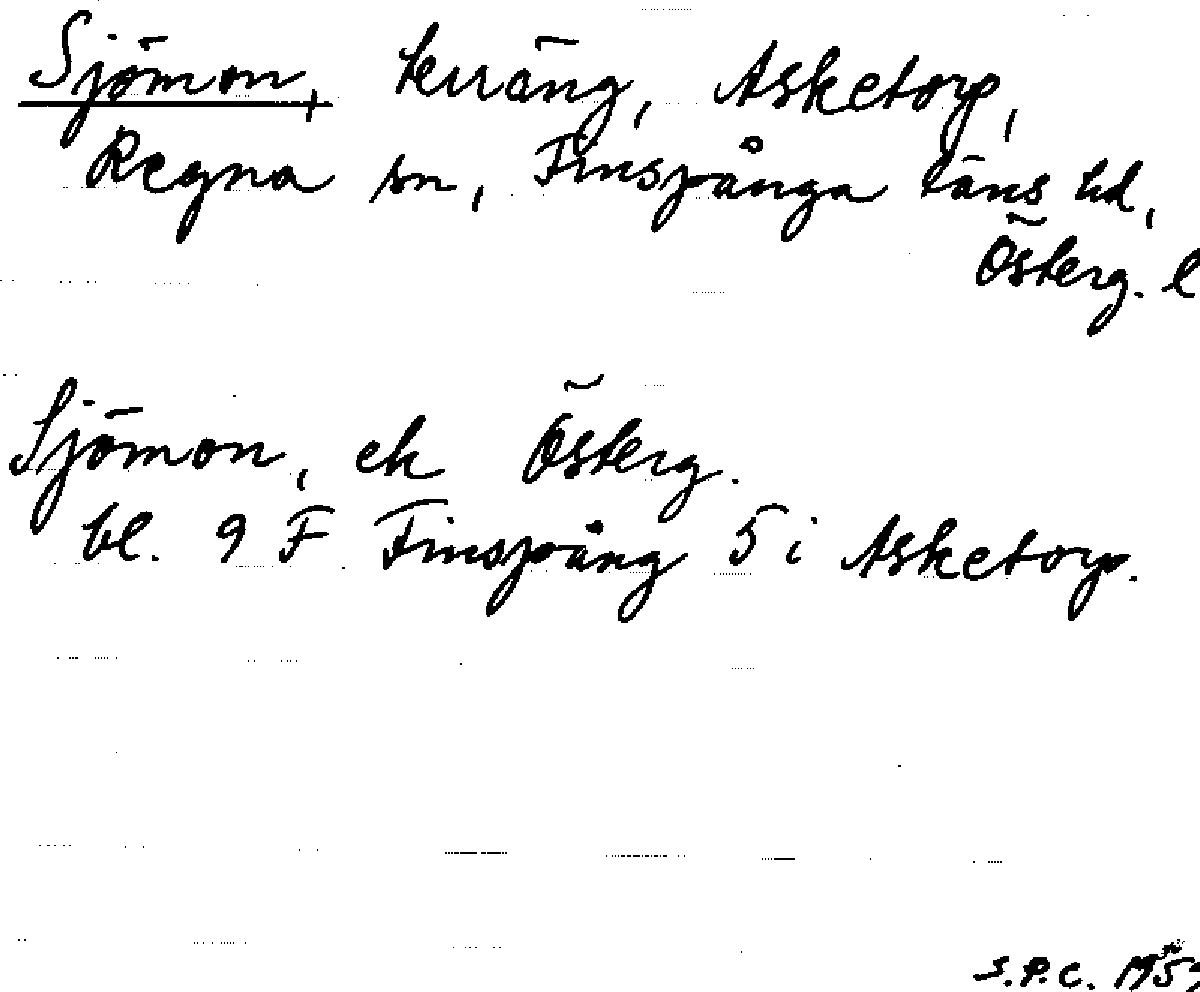 Sjömon, terräng, Asketorp,
Regna sn, Finspånga läns hd,
Österg. l
Sjömon, ek Österg.
bl. 9 F Finspång 5 i Asketorp.
S.P.C.